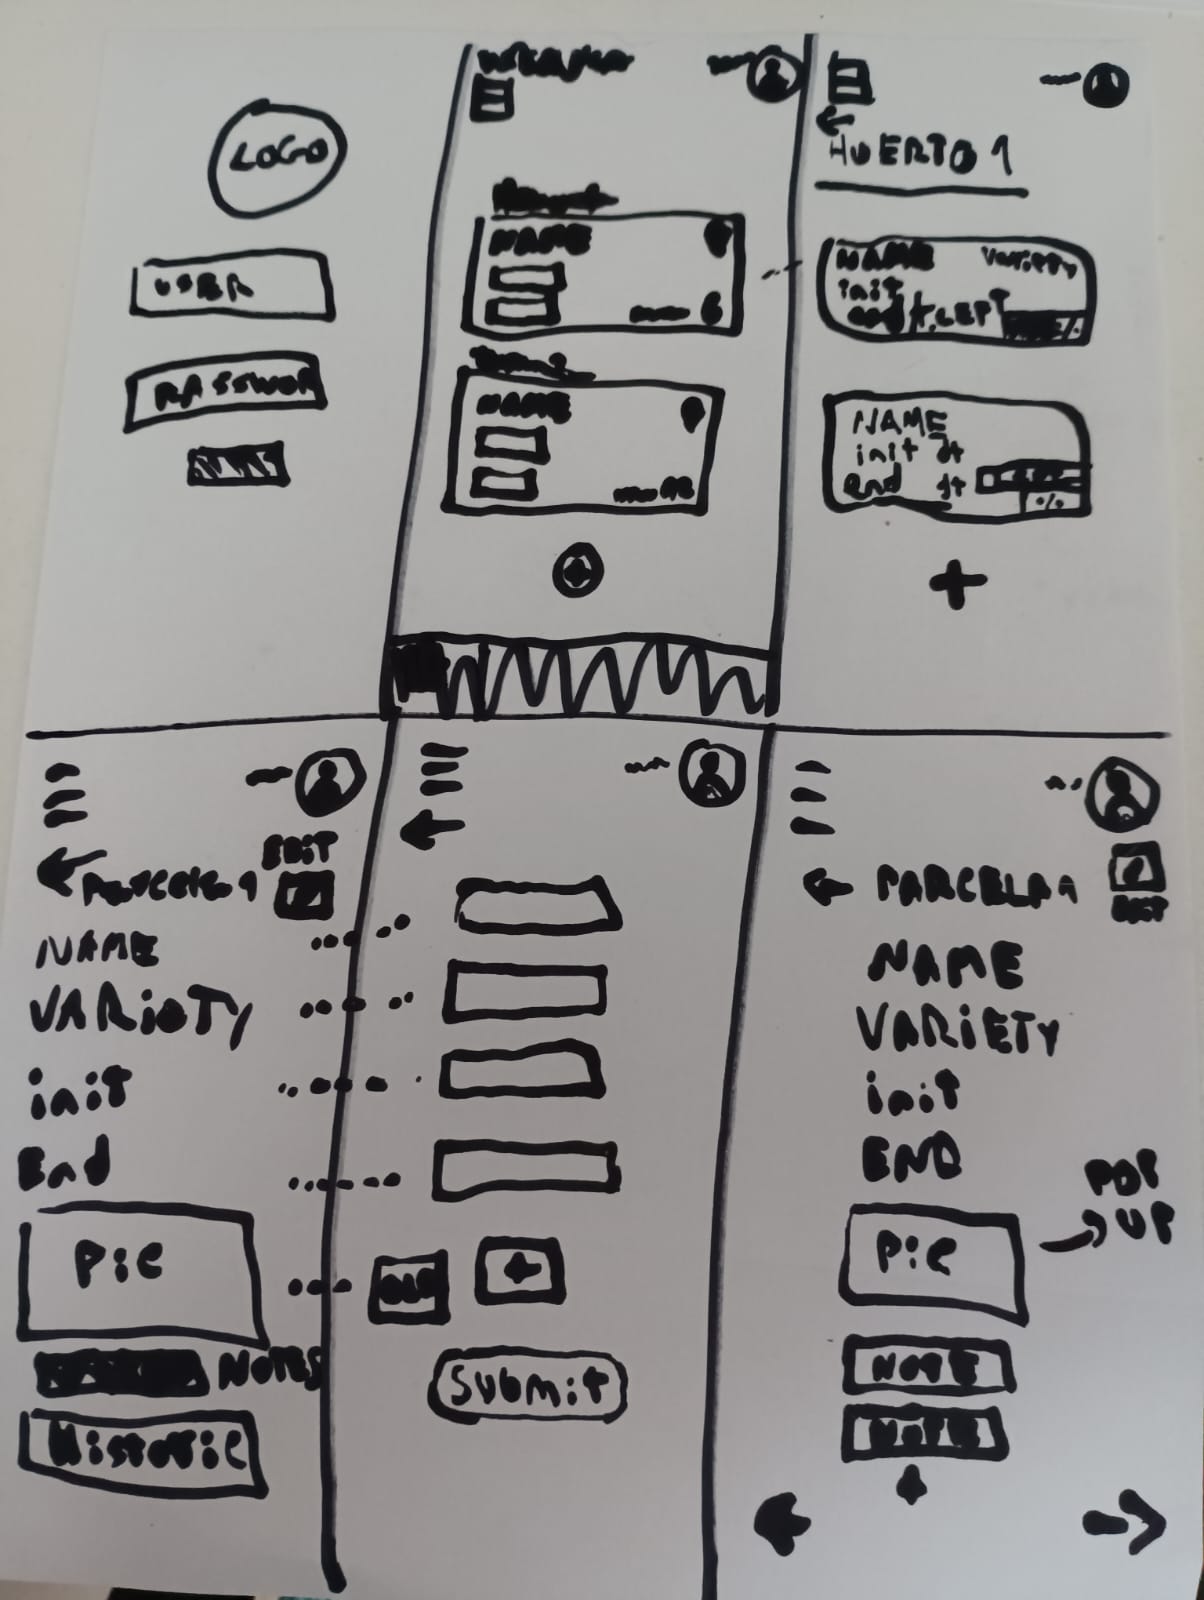 LOGO
USER
PASSWOR
NAME
NAME
HUERTO 1
NAME Variety
init
end t.LEFT
%
NAME
init dt
end dt
%
EDIT
Parcela 1
NAME
VARiETY
init
End
Pic
NOTES
Historic
Submit
PARCELA 1
EDIT
NAME
VARiETY
init
END
POP
UP
Pic
NOTE
NOTE